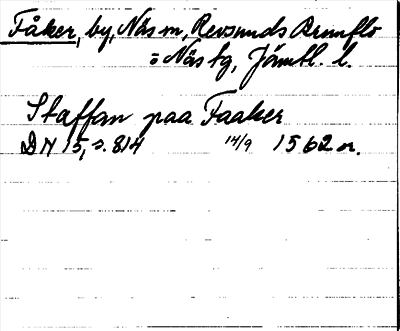 Fåker, by, Näs sn, Revsunds Brunflo
= Näs tg, Jämtl. l.
Staffan paa Faaker
DN 15, s. 814 14/9 1562 or.